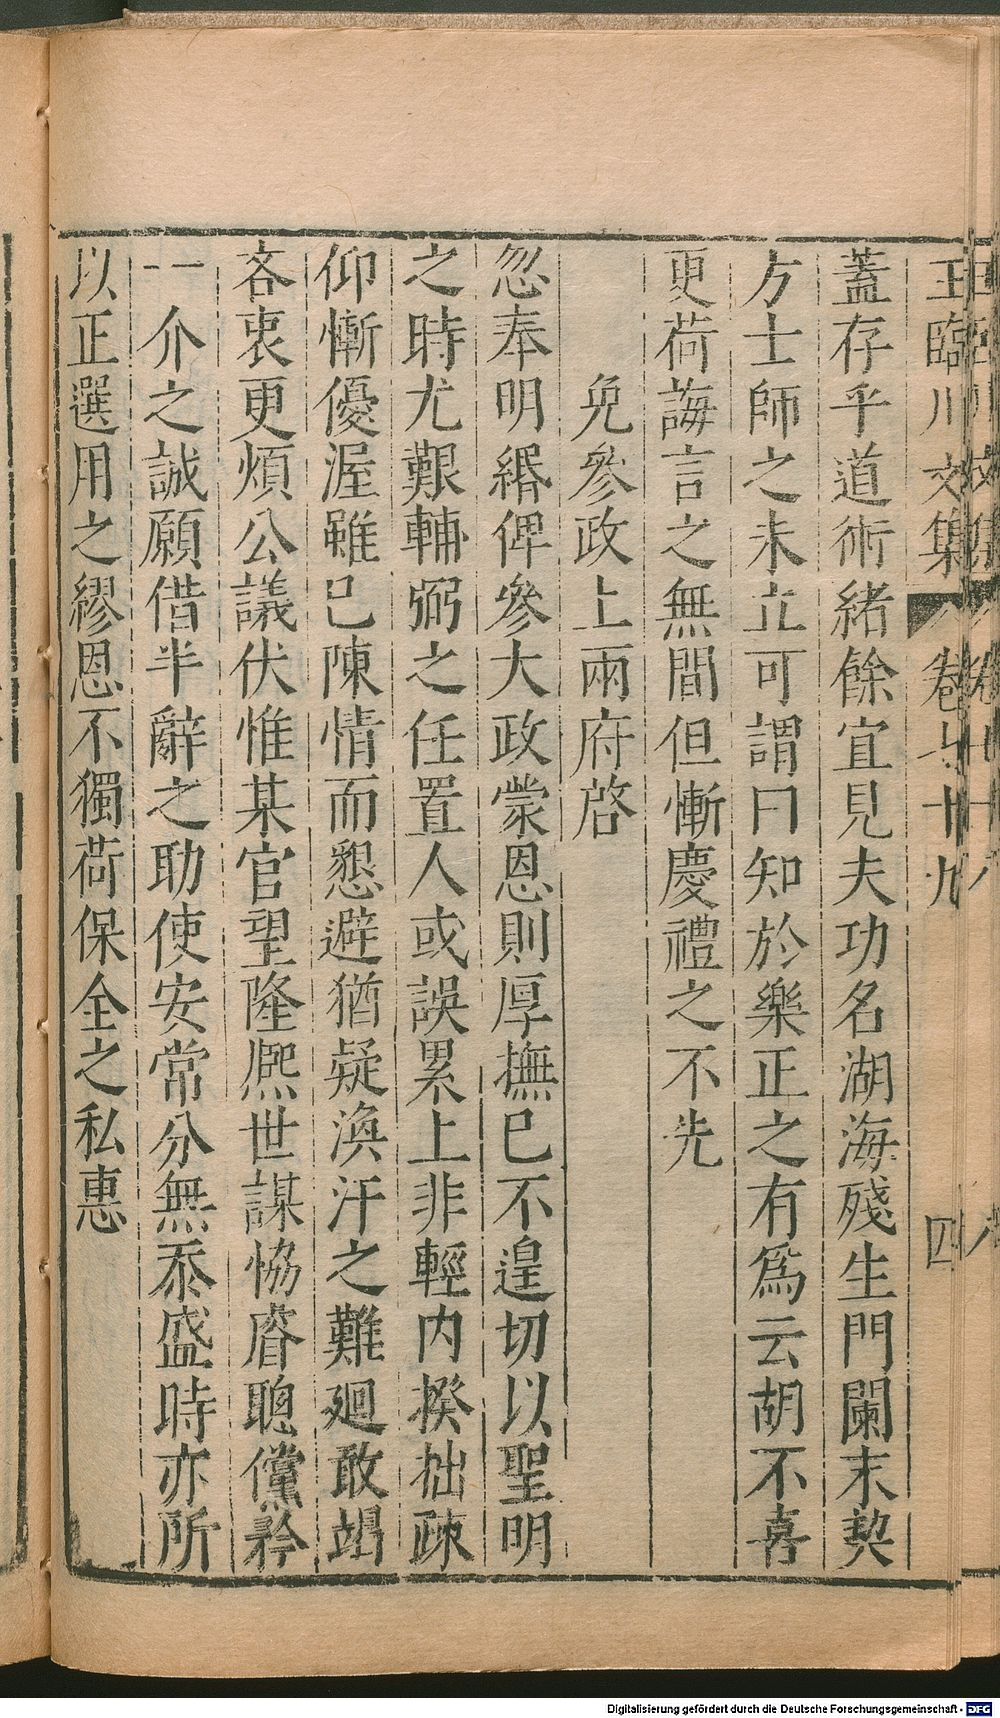 王臨川文集 卷七十九 四
蓋存乎道術緒餘宜見夫功名湖海殘生門闌末契
方士師之未立可謂曰知於樂正之有爲云胡不喜
更荷誨言之無間但慚慶禮之不先
免參政上兩府啓
忽奉明緡俾參大政蒙恩則厚撫已不遑切以聖明
之時尤艱輔弼之任置人或誤累上非輕内揆拙疎
仰慚優渥雖已陳情而懇避猶疑渙汗之難廻敢竭
吝衷更煩公議伏惟某官望隆熈世謀恊睿聰儻矜
一介之誠願借半辭之助使安常分無忝盛時亦所
以正選用之繆恩不獨荷保全之私惠
Digitalisierung gefördert durch die Deutsche Forschungsgemeinschaft - DFG